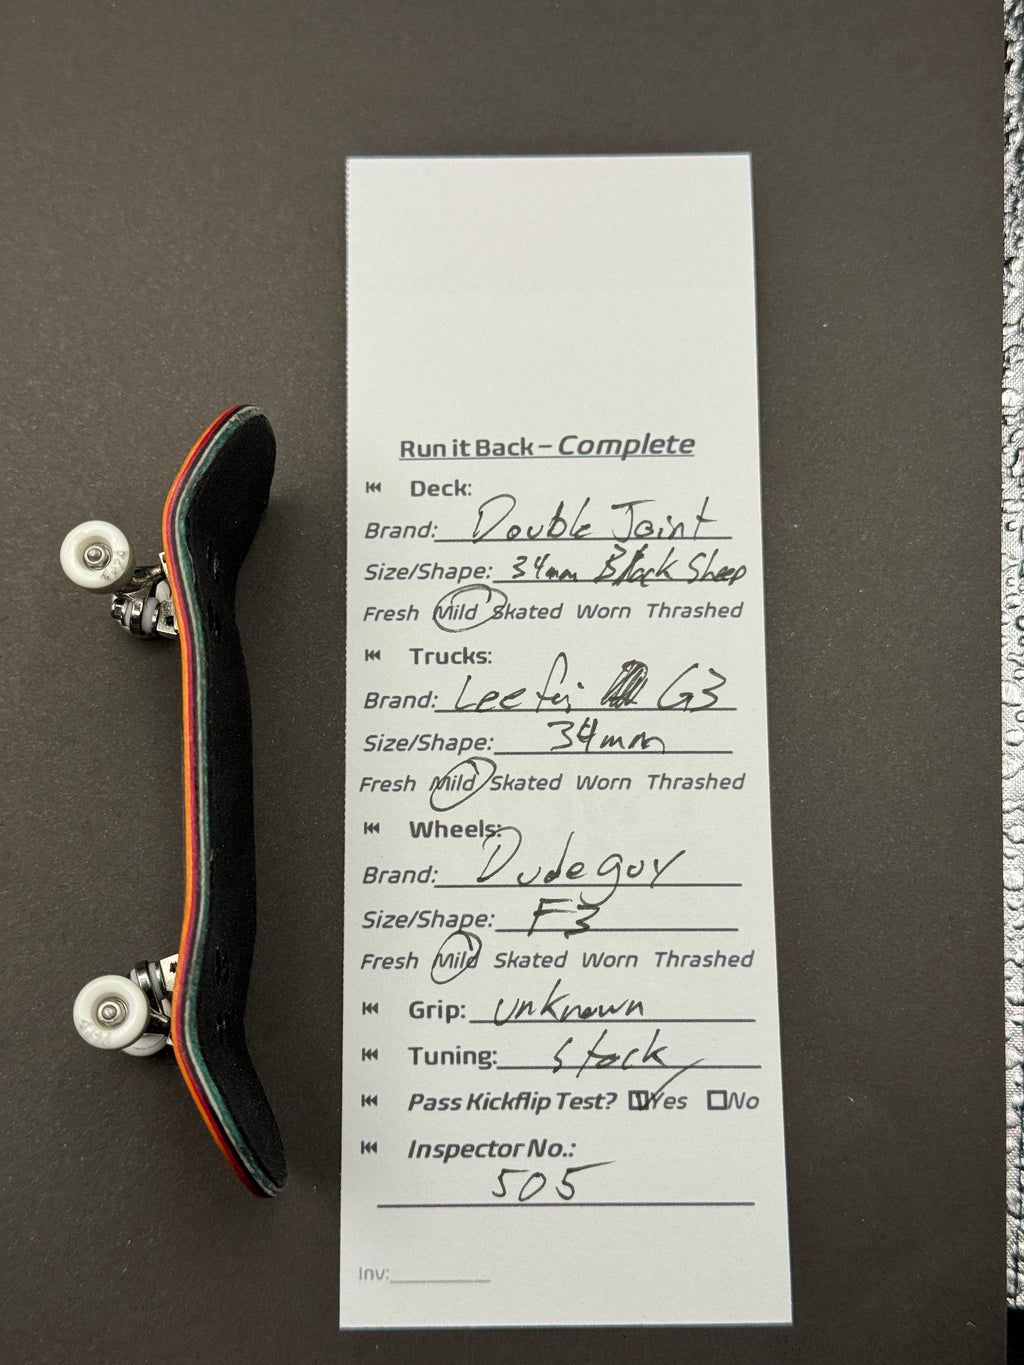 Run it Back – Complete
Deck:
Brand: Double Joint
Size/Shape: 34mm Black Sheep
Fresh Mild Skated Worn Thrashed
Trucks:
Brand: Leefai G3
Size/Shape: 34mm
Fresh Mild Skated Worn Thrashed
Wheels:
Brand: Dudeguy
Size/Shape: F3
Fresh Mild Skated Worn Thrashed
Grip: unknown
Tuning: stock
Pass Kickflip Test? Yes No
Inspector No.:
505
Inv: